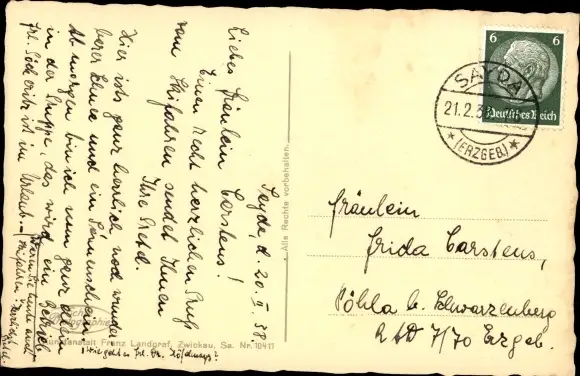 Sayda, d. 20. II. 38.
Liebes Fräulein Carstens!
Einen recht herzlichen Gruß
vom Skifahren sendet Ihnen
Ihre Gretel.
Hier ists ganz herrlich, noch wunder-
bare Leute und ein Sonnenschein
Ab morgen bin ich nun ganz allein
in der Gruppe, das wird ein Betrieb.
Frl. ist im Urlaub.
Alle Rechte vorbehalten.
Kunstanstalt Franz Landgraf, Zwickau, Sa. Nr. 10411
6 6
Deutsches Reich
SAYDA
21.2.38
(ERZGEB.)
Fräulein
Frida Carstens,
Pöhla b. Schwarzenberg
RAD 7/70 Erzgeb.